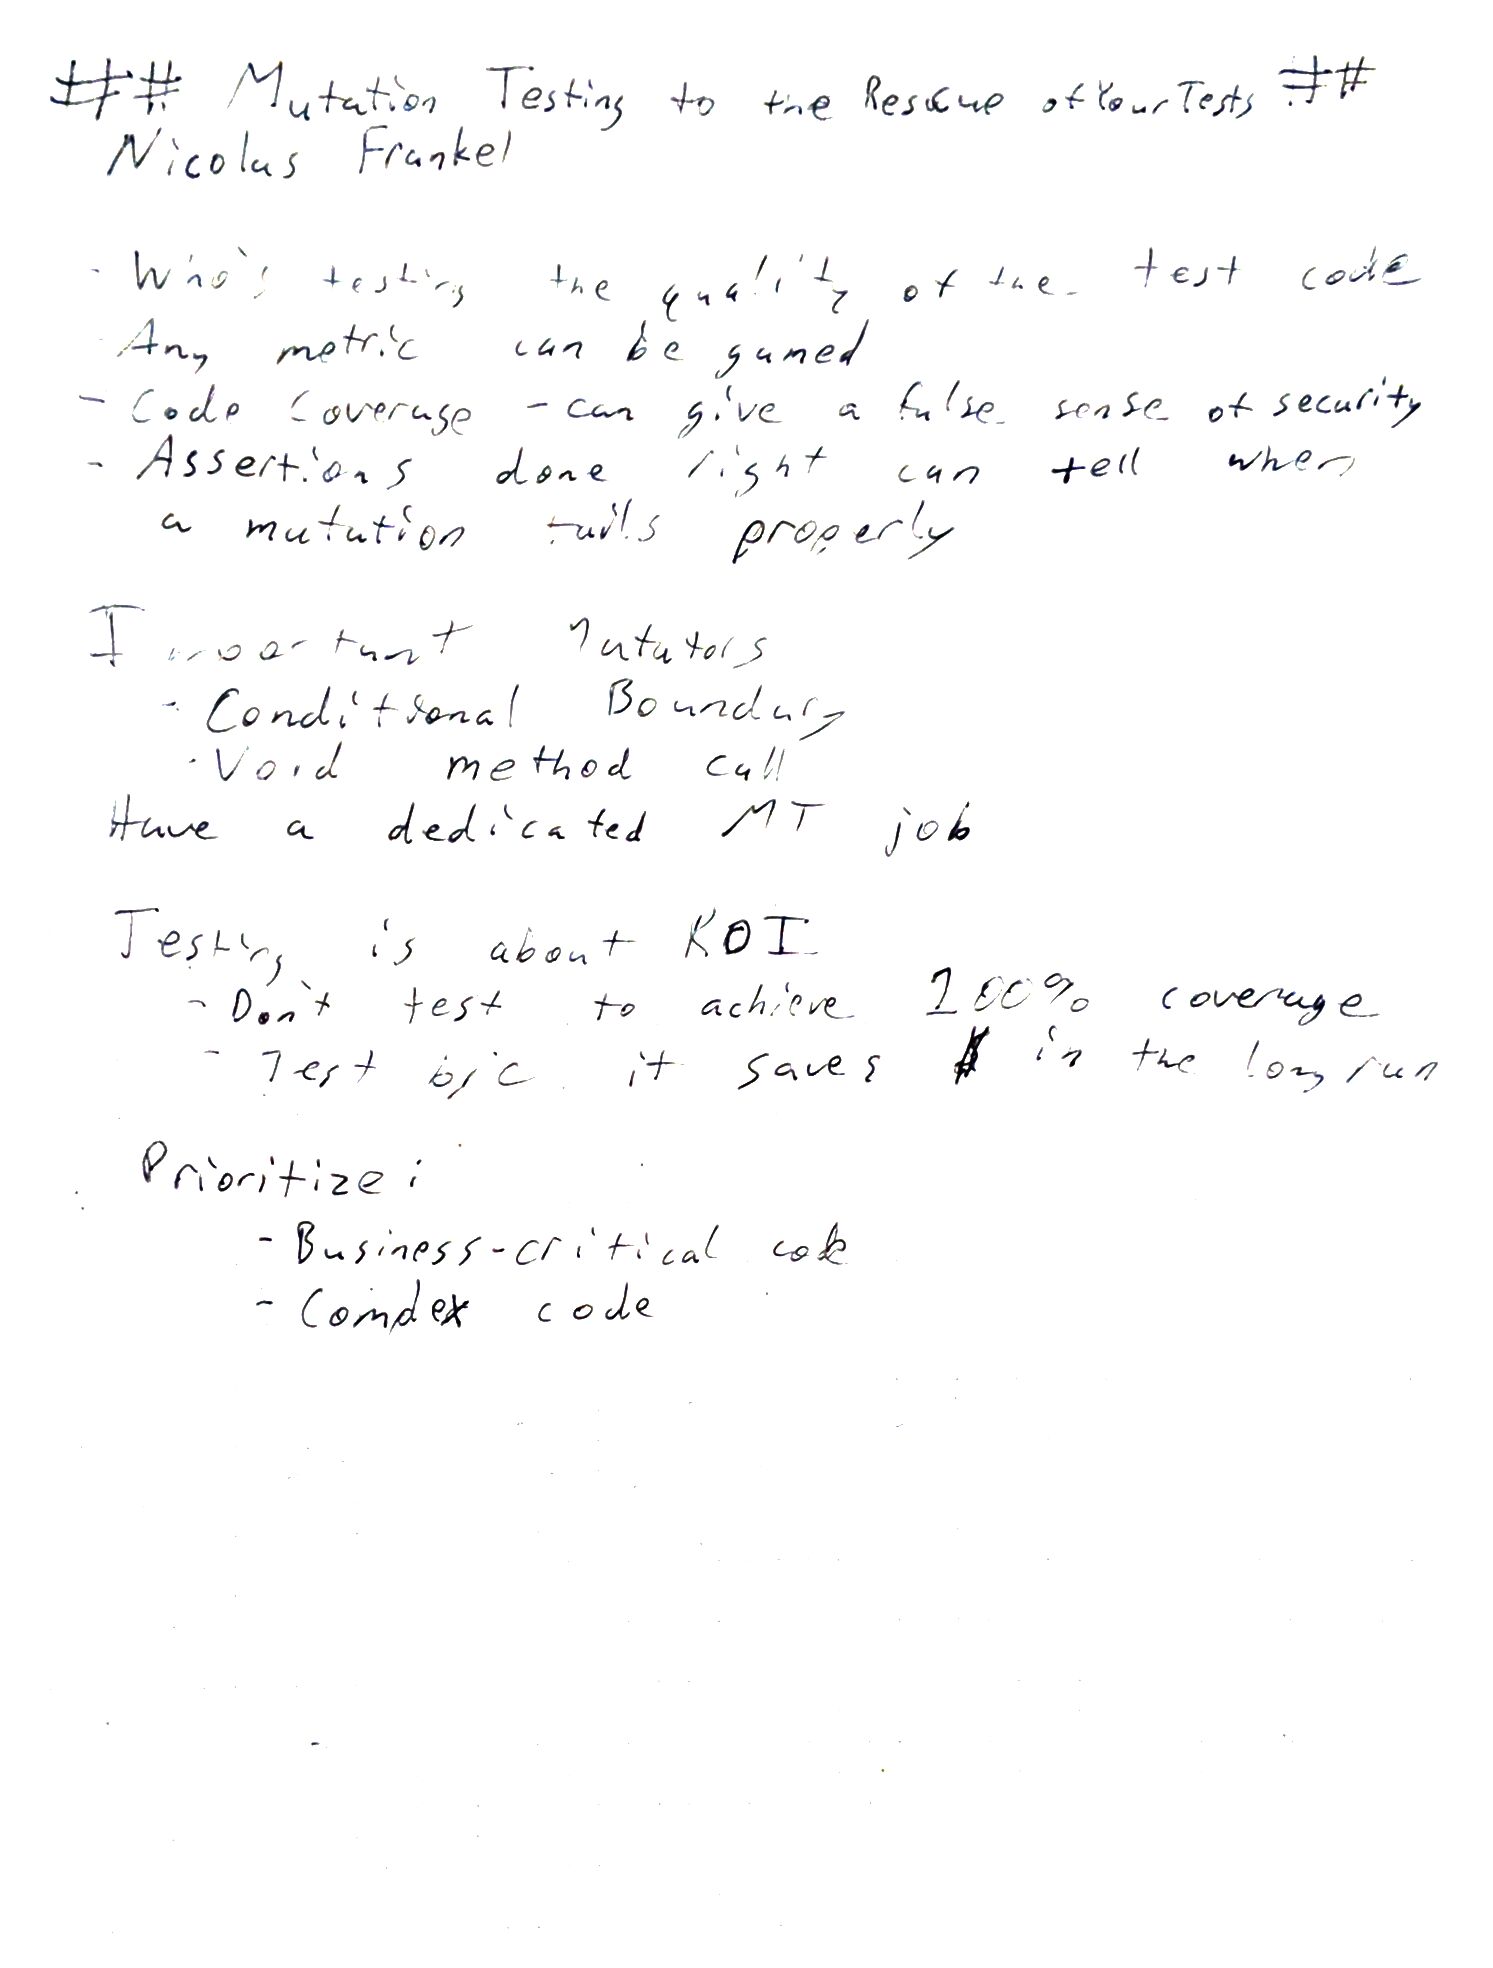 ## Mutation Testing to the Rescue of Your Tests ##
Nicolas Frankel
- Who's testing the quality of the test code
- Any metric can be gamed
- Code Coverage - can give a false sense of security
- Assertions done right can tell when
a mutation fails properly
Important Mutators
- Conditional Boundary
- Void method call
Have a dedicated MT job
Testing is about ROI
- Don't test to achieve 100% coverage
- Test b/c it saves $ in the long run
Prioritize:
- Business-critical code
- Complex code